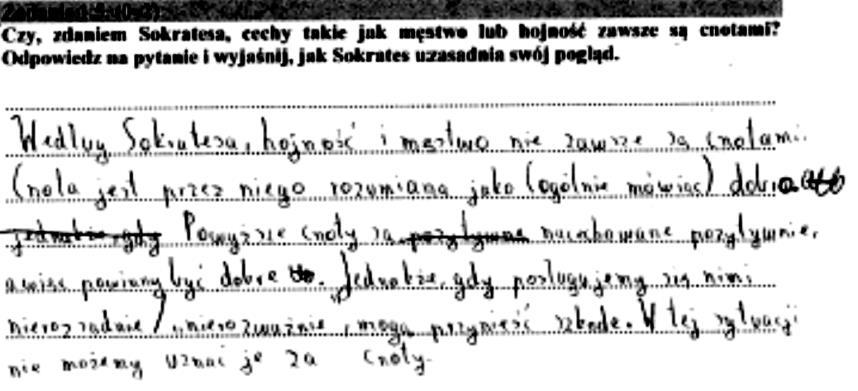 Czy, zdaniem Sokratesa, cechy takie jak męstwo lub hojność zawsze są cnotami?
Odpowiedz na pytanie i wyjaśnij, jak Sokrates uzasadnia swój pogląd.
Według Sokratesa, hojność i męstwo nie zawsze są cnotami.
Cnota jest przez niego rozumiana jako (ogólnie mówiąc) dobro
jednakże gdy Powyższe cnoty są pozytywne nacechowane pozytywnie,
a więc powinny być dobre. Jednakże, gdy posługujemy się nimi
nierozsądnie / "nierozważnie, mogą przynieść szkodę. W tej sytuacji
nie możemy uznać je za cnoty.